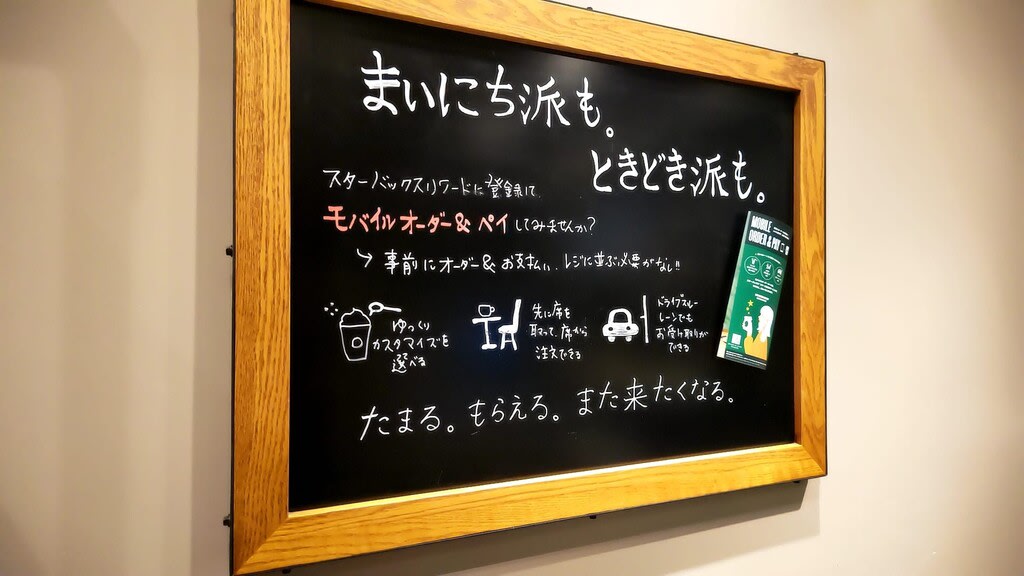 まいにち派も。
ときどき派も。
スターバックスリワードに登録して
モバイルオーダー& ペイ してみませんか?
↳ 事前にオーダー& お支払い、レジに並ぶ必要がなし!!
ゆっくり
カスタマイズを
選べる
先に席を
取って、席から
注文できる
ドライブスルー
レーンでも
お受け取りが
できる
たまる。もらえる。また来たくなる。
MOBILE
ORDER & PAY